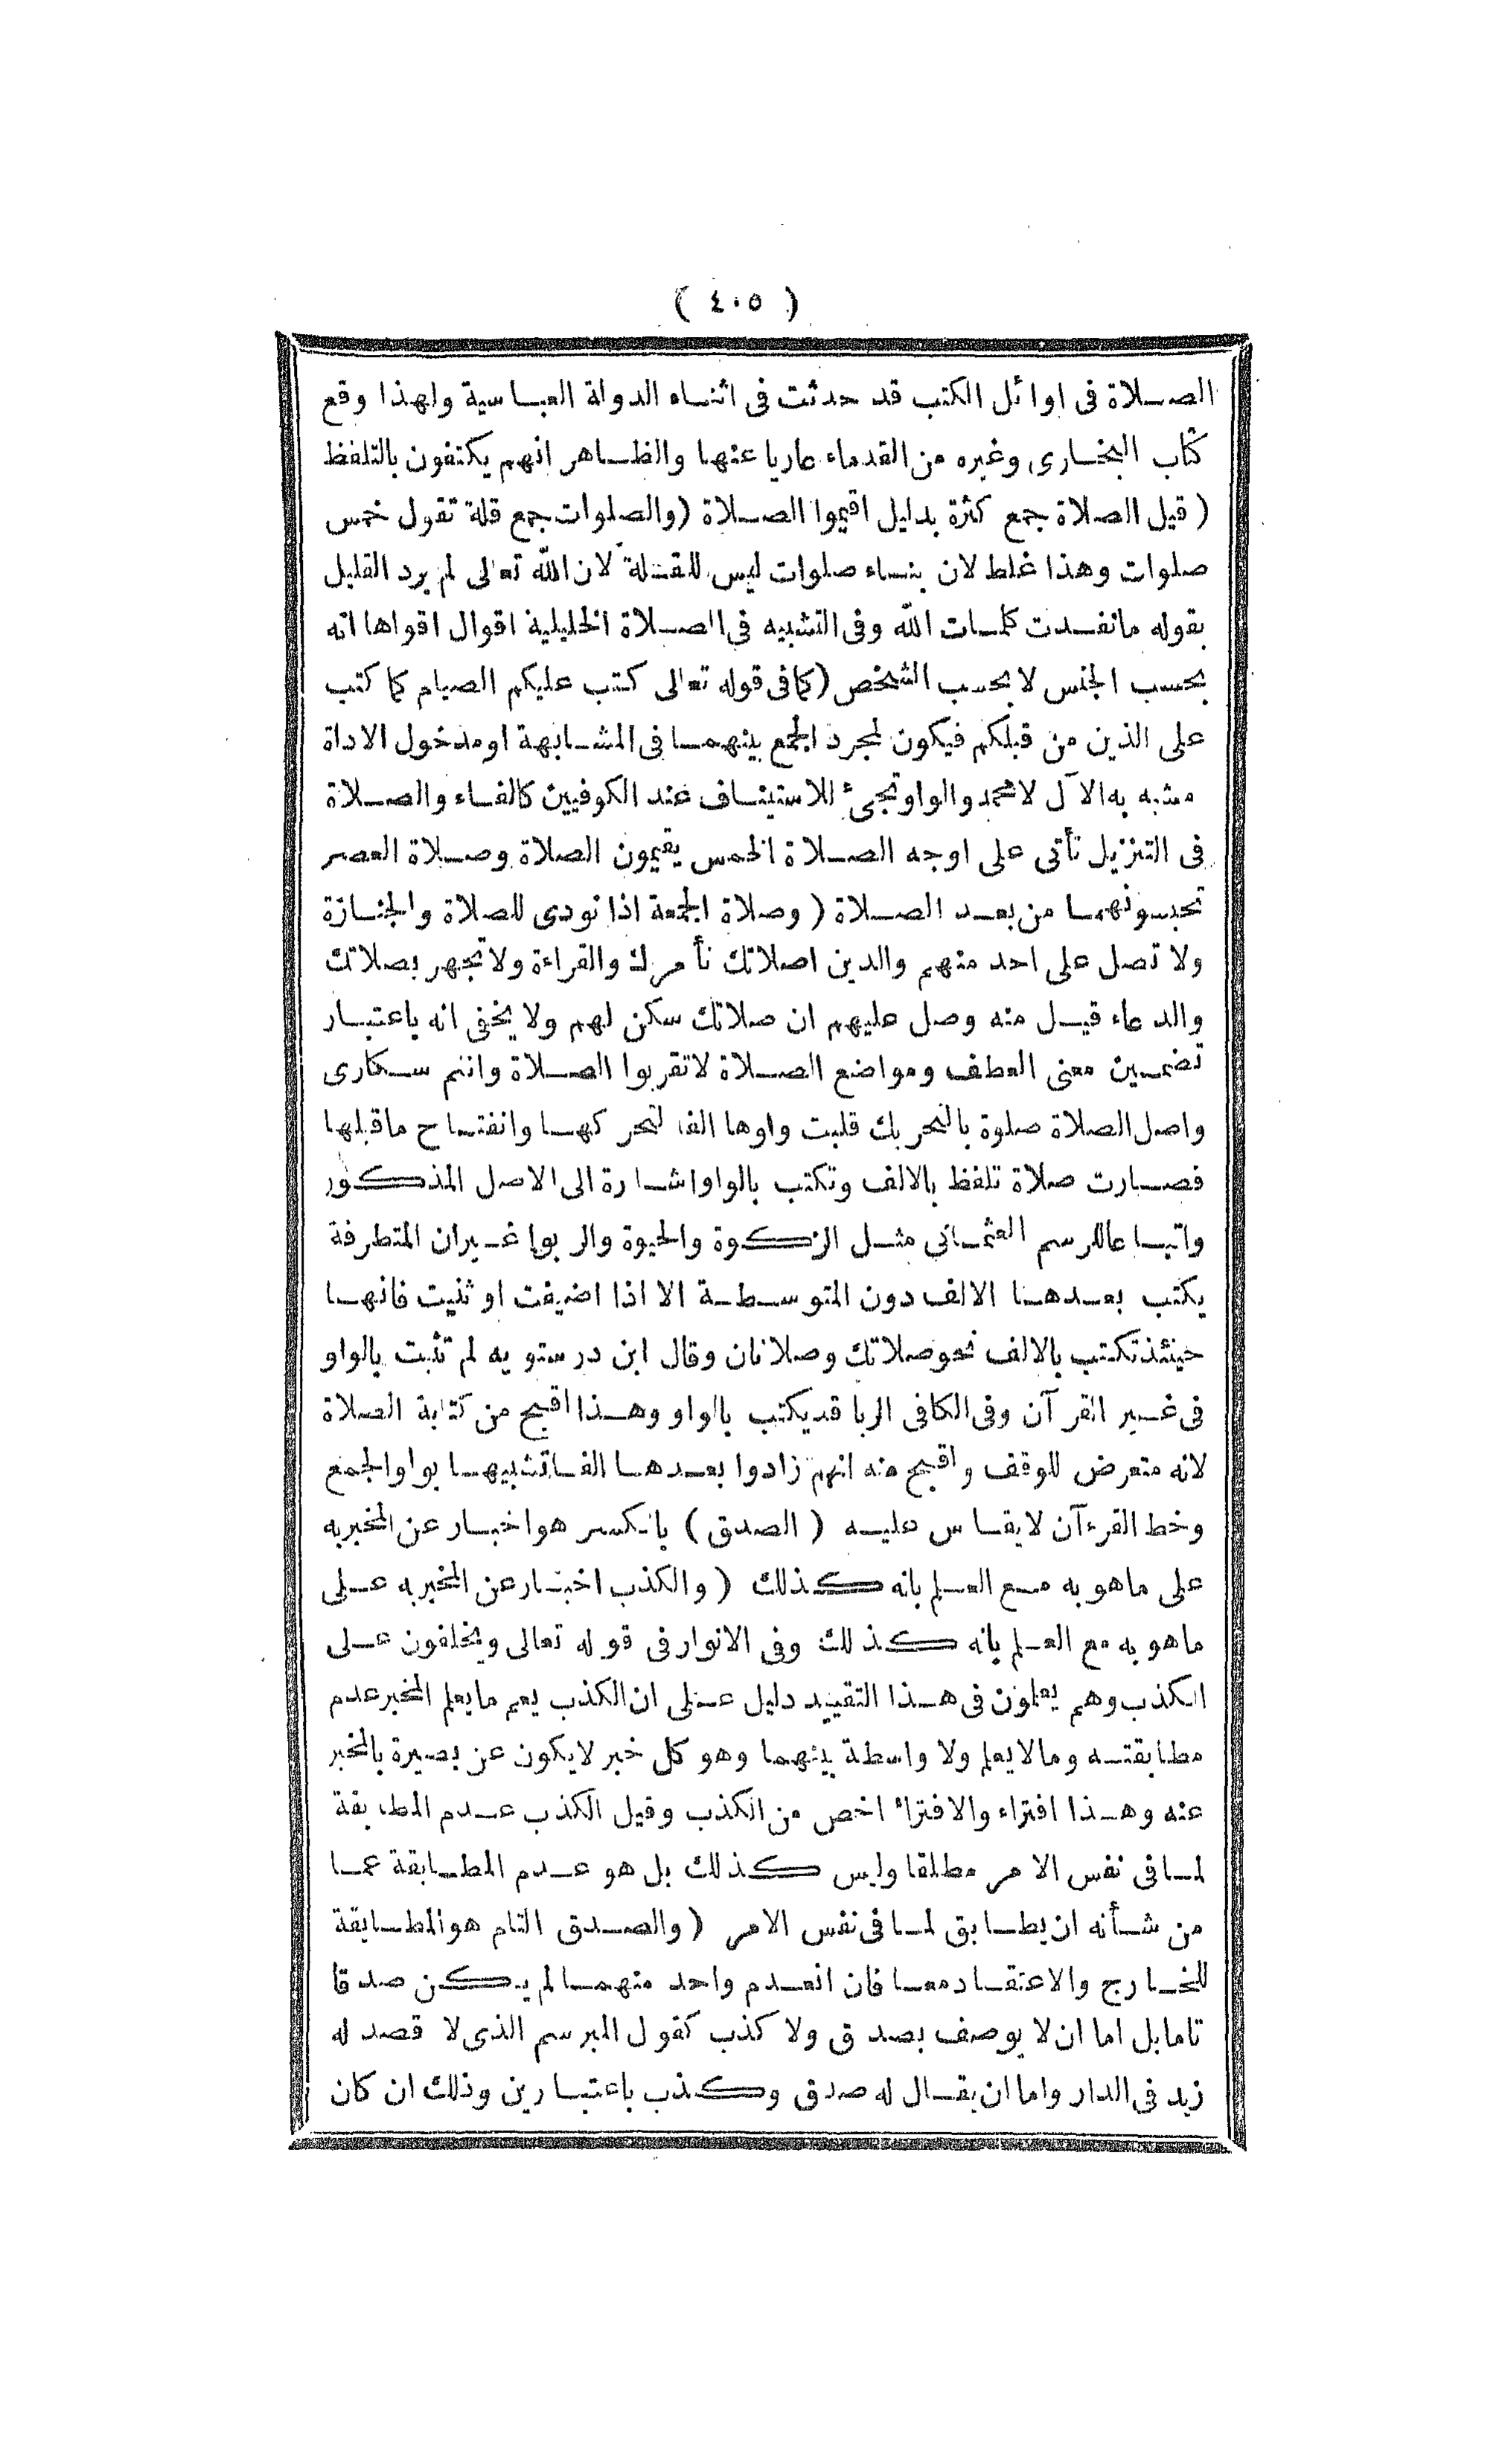 ( ٤٠٥ )
الصلاة فى اوائل الكتب قد حدثت فى اثناء الدولة العباسية ولهذا وقع
كتاب البخارى وغيره من القدماء عاريا عنها والظاهر انهم يكتفون بالتلفظ
( قيل الصلاة جمع كثرة بدليل اقيموا الصلاة ( والصلوات جمع قلة تقول خمس
صلوات وهذا غلط لان بناء صلوات ليس للقلة لان الله تعالى لم يرد القليل
بقوله مانفدت كلمات الله وفى التشبيه فى الصلاة الخليلية اقوال اقواها انه
بحسب الجنس لا بحسب الشخص ( كما فى قوله تعالى كتب عليكم الصيام كما كتب
على الذين من قبلكم فيكون لمجرد الجمع بينهما فى المشابهة او مدخول الاداة
مشبه به الآل لا محمد والواو تجىء للاستيناف عند الكوفيين كالفاء والصلاة
فى التنزيل تأتى على اوجه الصلاة الخمس يقيمون الصلاة وصلاة العصر
تحبسونهما من بعد الصلاة ( وصلاة الجمعة اذا نودى للصلاة والجنازة
ولا تصل على احد منهم والدين اصلاتك تأمرك والقراءة ولا تجهر بصلاتك
والدعاء قيل منه وصل عليهم ان صلاتك سكن لهم ولا يخفى انه باعتبار
تضمين معنى العطف ومواضع الصلاة لاتقربوا الصلاة وانتم سكارى
واصل الصلاة صلوة بالتحريك قلبت واوها الفا لتحركها وانفتاح ماقبلها
فصارت صلاة تلفظ بالالف وتكتب بالواو اشارة الى الاصل المذكور
واتباعا للرسم العثمانى مثل الزكوة والحيوة والربوا غير ان المتطرفة
يكتب بعدها الالف دون المتوسطة الا اذا اضيفت او ثنيت فانها
حينئذ تكتب بالالف نحو صلاتك وصلاتان وقال ابن درستويه لم تثبت بالواو
فى غير القرآن وفى الكافى الربا قد يكتب بالواو وهذا اقبح من كتابة الصلاة
لانه متعرض للوقف واقبح منه انهم زادوا بعدها الفا تشبيها بواو الجمع
وخط القرءآن لايقاس عليه ( الصدق ) بالكسر هو اخبار عن المخبر به
على ماهو به مع العلم بانه كذلك ( والكذب اخبار عن المخبر به على
ماهو به مع العلم بانه كذلك وفى الانوار فى قوله تعالى ويحلفون على
الكذب وهم يعلمون فى هذا التقييد دليل على ان الكذب يعم مايعلم المخبر عدم
مطابقته ومالا يعلم ولا واسطة بينهما وهو كل خبر لايكون عن بصيرة بالمخبر
عنه وهذا افتراء والافتراء اخص من الكذب وقيل الكذب عدم المطابقة
لما فى نفس الامر مطلقا وليس كذلك بل هو عدم المطابقة عما
من شأنه ان يطابق لما فى نفس الامر ( والصدق التام هو المطابقة
للخارج والاعتقاد معا فان انعدم واحد منهما لم يكن صدقا
تاما بل اما ان لا يوصف بصدق ولا كذب كقول المبرسم الذى لا قصد له
زيد فى الدار واما ان يقال له صدق وكذب باعتبارين وذلك ان كان